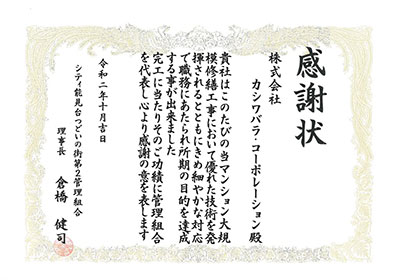 感謝状
株式会社
カシワバラ・コーポレーション殿
貴社はこのたびの当マンション大規
模修繕工事において優れた技術を発
揮されるとともにきめ細やかな対応
で職務にあたられ所期の目的を達成
する事が出来ました
完工に当たりそのご功績に管理組合
を代表し心より感謝の意を表します
令和二年十月吉日
シティ能見台つどいの街第2管理組合
理事長 倉橋健司